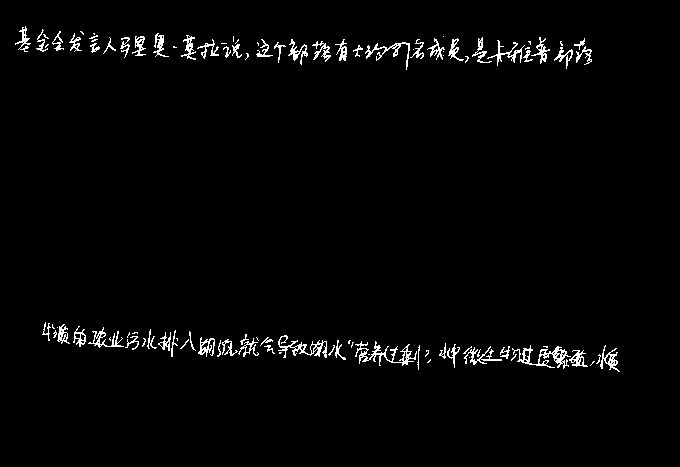 基金会发言人马里奥·莫拉说,这个部落有大约87名成员,是卡雅普部落
物质的农业污水排入湖泊,就会导致湖水“营养过剩”,水中微生物过度繁殖,水质